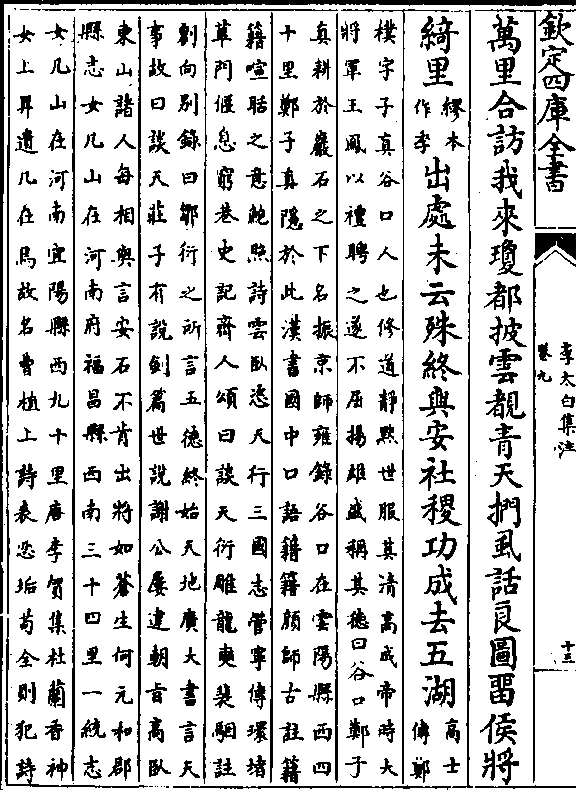 欽定四庫全書
李太白集注
卷九
十三
萬里合訪我來瓊都披雲覩青天捫虱話良圖畱侯將
綺里繆本作李出處未云殊終與安社稷功成去五湖高士傳鄭
樸字子真谷口人也修道靜默世服其清高成帝時大
將軍王鳳以禮聘之遂不屈揚雄盛稱其德曰谷口鄭子
真耕於巖石之下名振京師雍錄谷口在雲陽縣西四
十里鄭子真隱於此漢書國中口語籍籍顏師古註籍
籍喧聒之意鮑照詩雲臥恣天行三國志管寧傳環堵
蓽門偃息窮巷史記齊人頌曰談天衍雕龍奭裴駰註
劉向別錄曰鄒衍之所言五德終始天地廣大書言天
事故曰談天莊子有說劍篇世說謝公屢違朝旨高臥
東山諸人每相與言安石不肯出將如蒼生何元和郡
縣志女几山在河南府福昌縣西南三十四里一統志
女几山在河南宜陽縣西九十里唐李賀集杜蘭香神
女上昇遺几在焉故名曹植上詩表忍垢苟全則犯詩